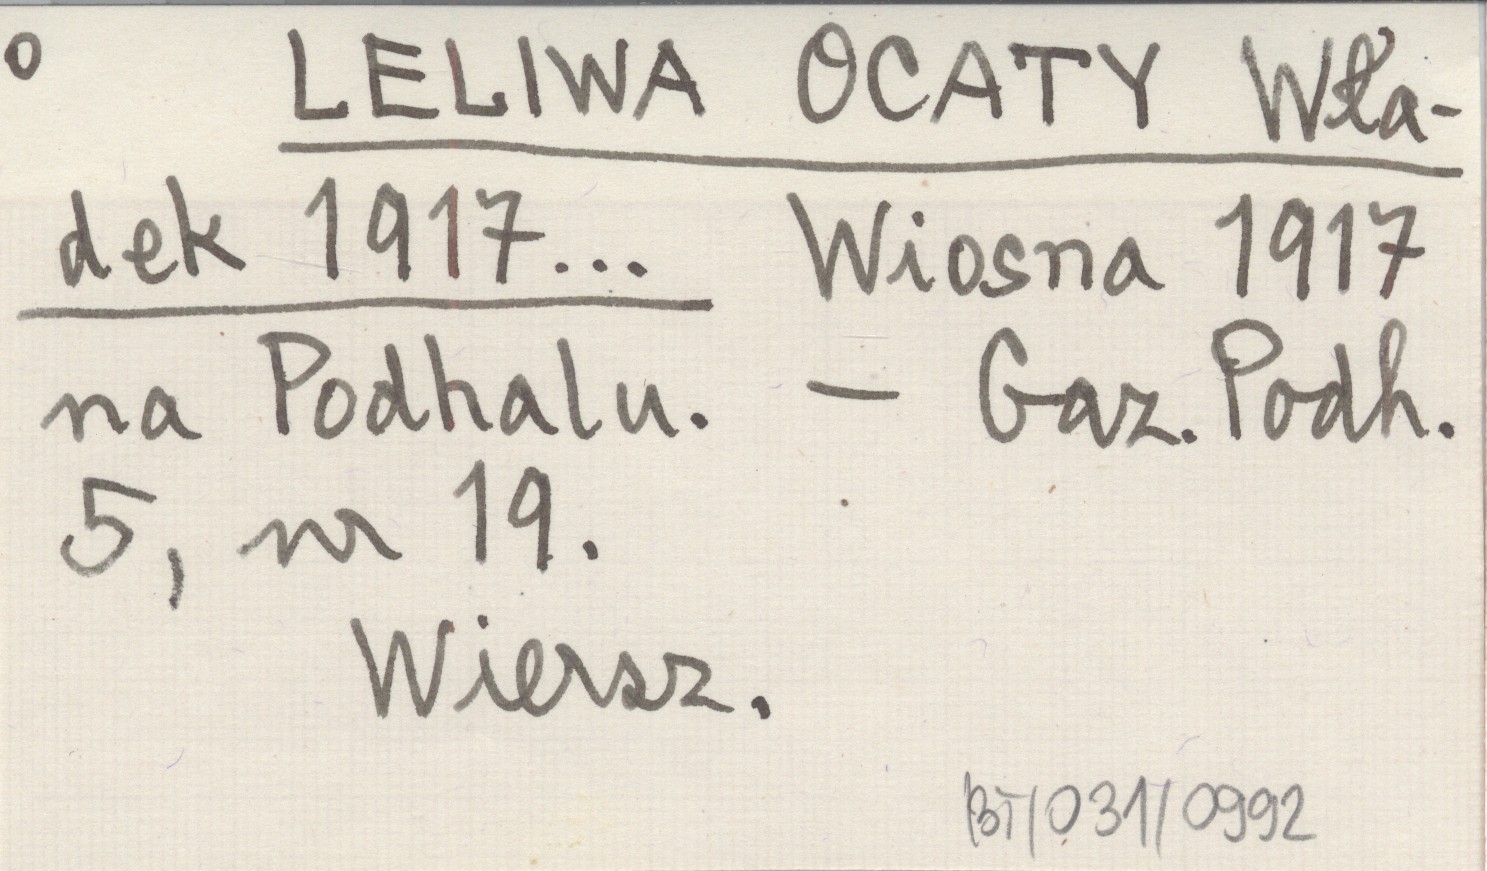 o LELIWA OCATY Wła-
dek 1917... Wiosna 1917
na Podhalu. – Gaz. Podh.
5, nr 19.
Wiersz.
BT/031/0992